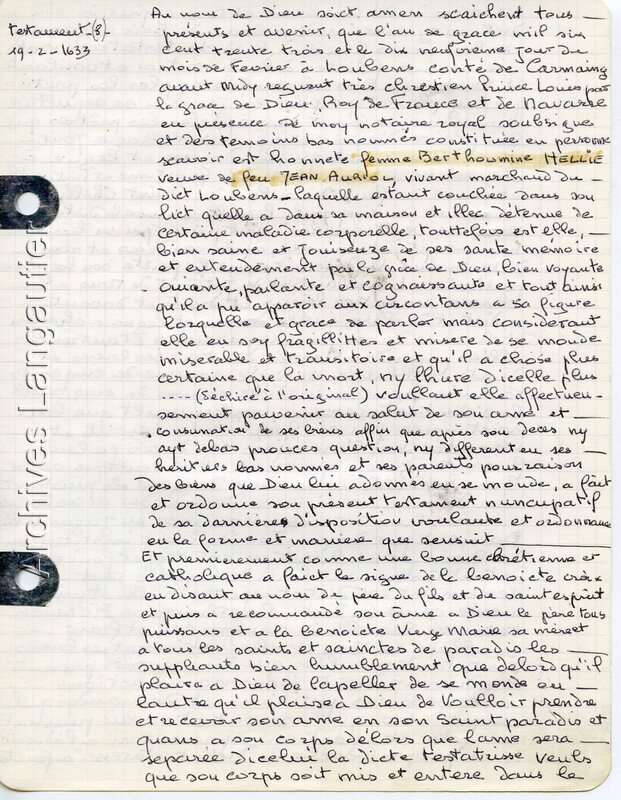 testament (3)
19-2-1633
Au nom de Dieu soict amen scaichent tous
présents et avenir, que l'an de grace mil six
cent trente trois et le dix neufvieme jour du
mois de Fevrier à Loubens conté de Carmaing
avant Midy regnant tres chrestien Prince Louis par
la grace de Dieu, Roy de France et de Navarre
en présence de moy notaire royal soubsigne
et des temoins bas nommés constituée en personne
scavoir est honnete femme Berthoumine HELLIE
veuse de feu JEAN AURIOL, vivant marchand du
dict Loubens laquelle estant couchée dans son
lict quelle a dans sa maison et illec détenue de
certaine maladie corporelle, touttefois est elle,
bien saine et Jouiseuze de ses sante mémoire
et entendement par la grâce de Dieu, bien voyante
oriante, parlante et cognaissante et tout ainsi
qu'il a pu apparoir aux circontans a sa figure
lorquelle et grace de parler mais considerant
elle en soy fragillittes et misere de se monde
miserable et transitoire et qu'il a chose plus
certaine que la mort, ny lhiure dicelle plus
..... (déchiré à l'original) voullant elle affectueu-
sement pourenir au salut de son ame et
consonation de ses biens affin que après son deces ny
ayt debas prouces, question, ny differents en ses
heritiers bas nommes et ses parents pour raison
des biens que Dieu lui a donnés en se monde, a fait
et ordonne son présent testament nuncupatif
de sa darnière disposition voulante et ordonnance
en la forme et maniere que sensuit
Et premierement comme une bonne chrétienne et
catholique a faict le signe de la benoicte croix
en disant au nom du père du fils et du saint esprit
et puis a recommandé son âme a Dieu le père tous
puissans et a la benoicte Vierge Marie sa mère et
a tous les saints et sainctes de paradis les
suppliants bien humblement que delord qu'il
plaira a Dieu de lapeller de se monde en
lautre qu'il plaise à Dieu de Voulloir prendre
et recevoir son ame en son Saint paradis et
quans a son corps délors que lame sera
separée dicelui la dicte testatrisse veult
que son corps soit mis et entere dans le
Archives Langautier